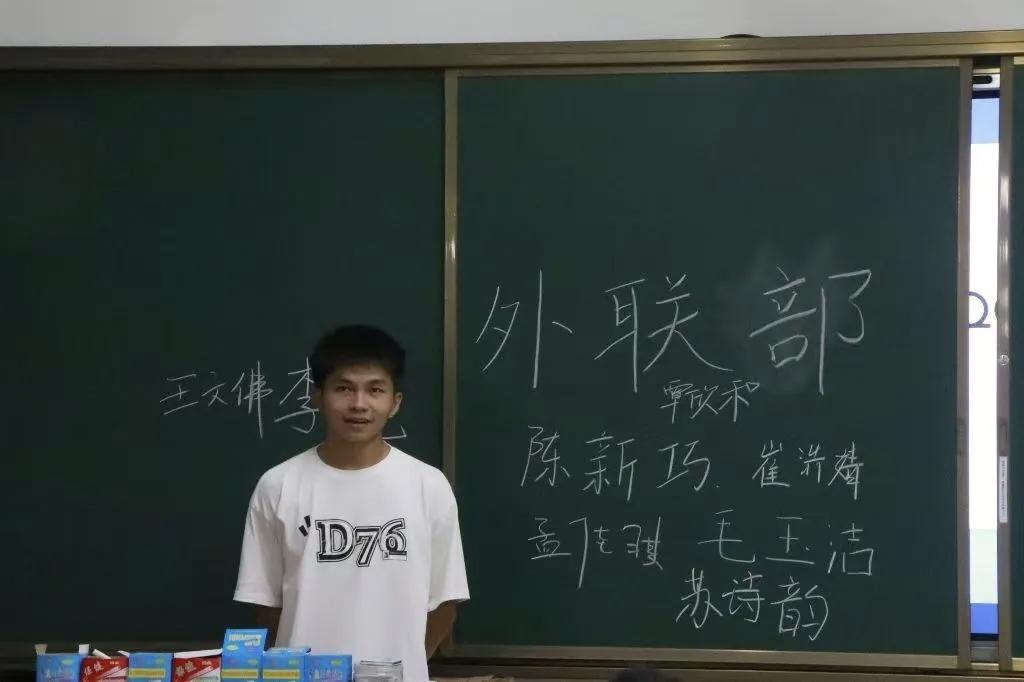 外联部
覃欣和
陈新巧 崔洪
孟佳琪 毛玉洁
苏诗韵
王文佛 李
"D76